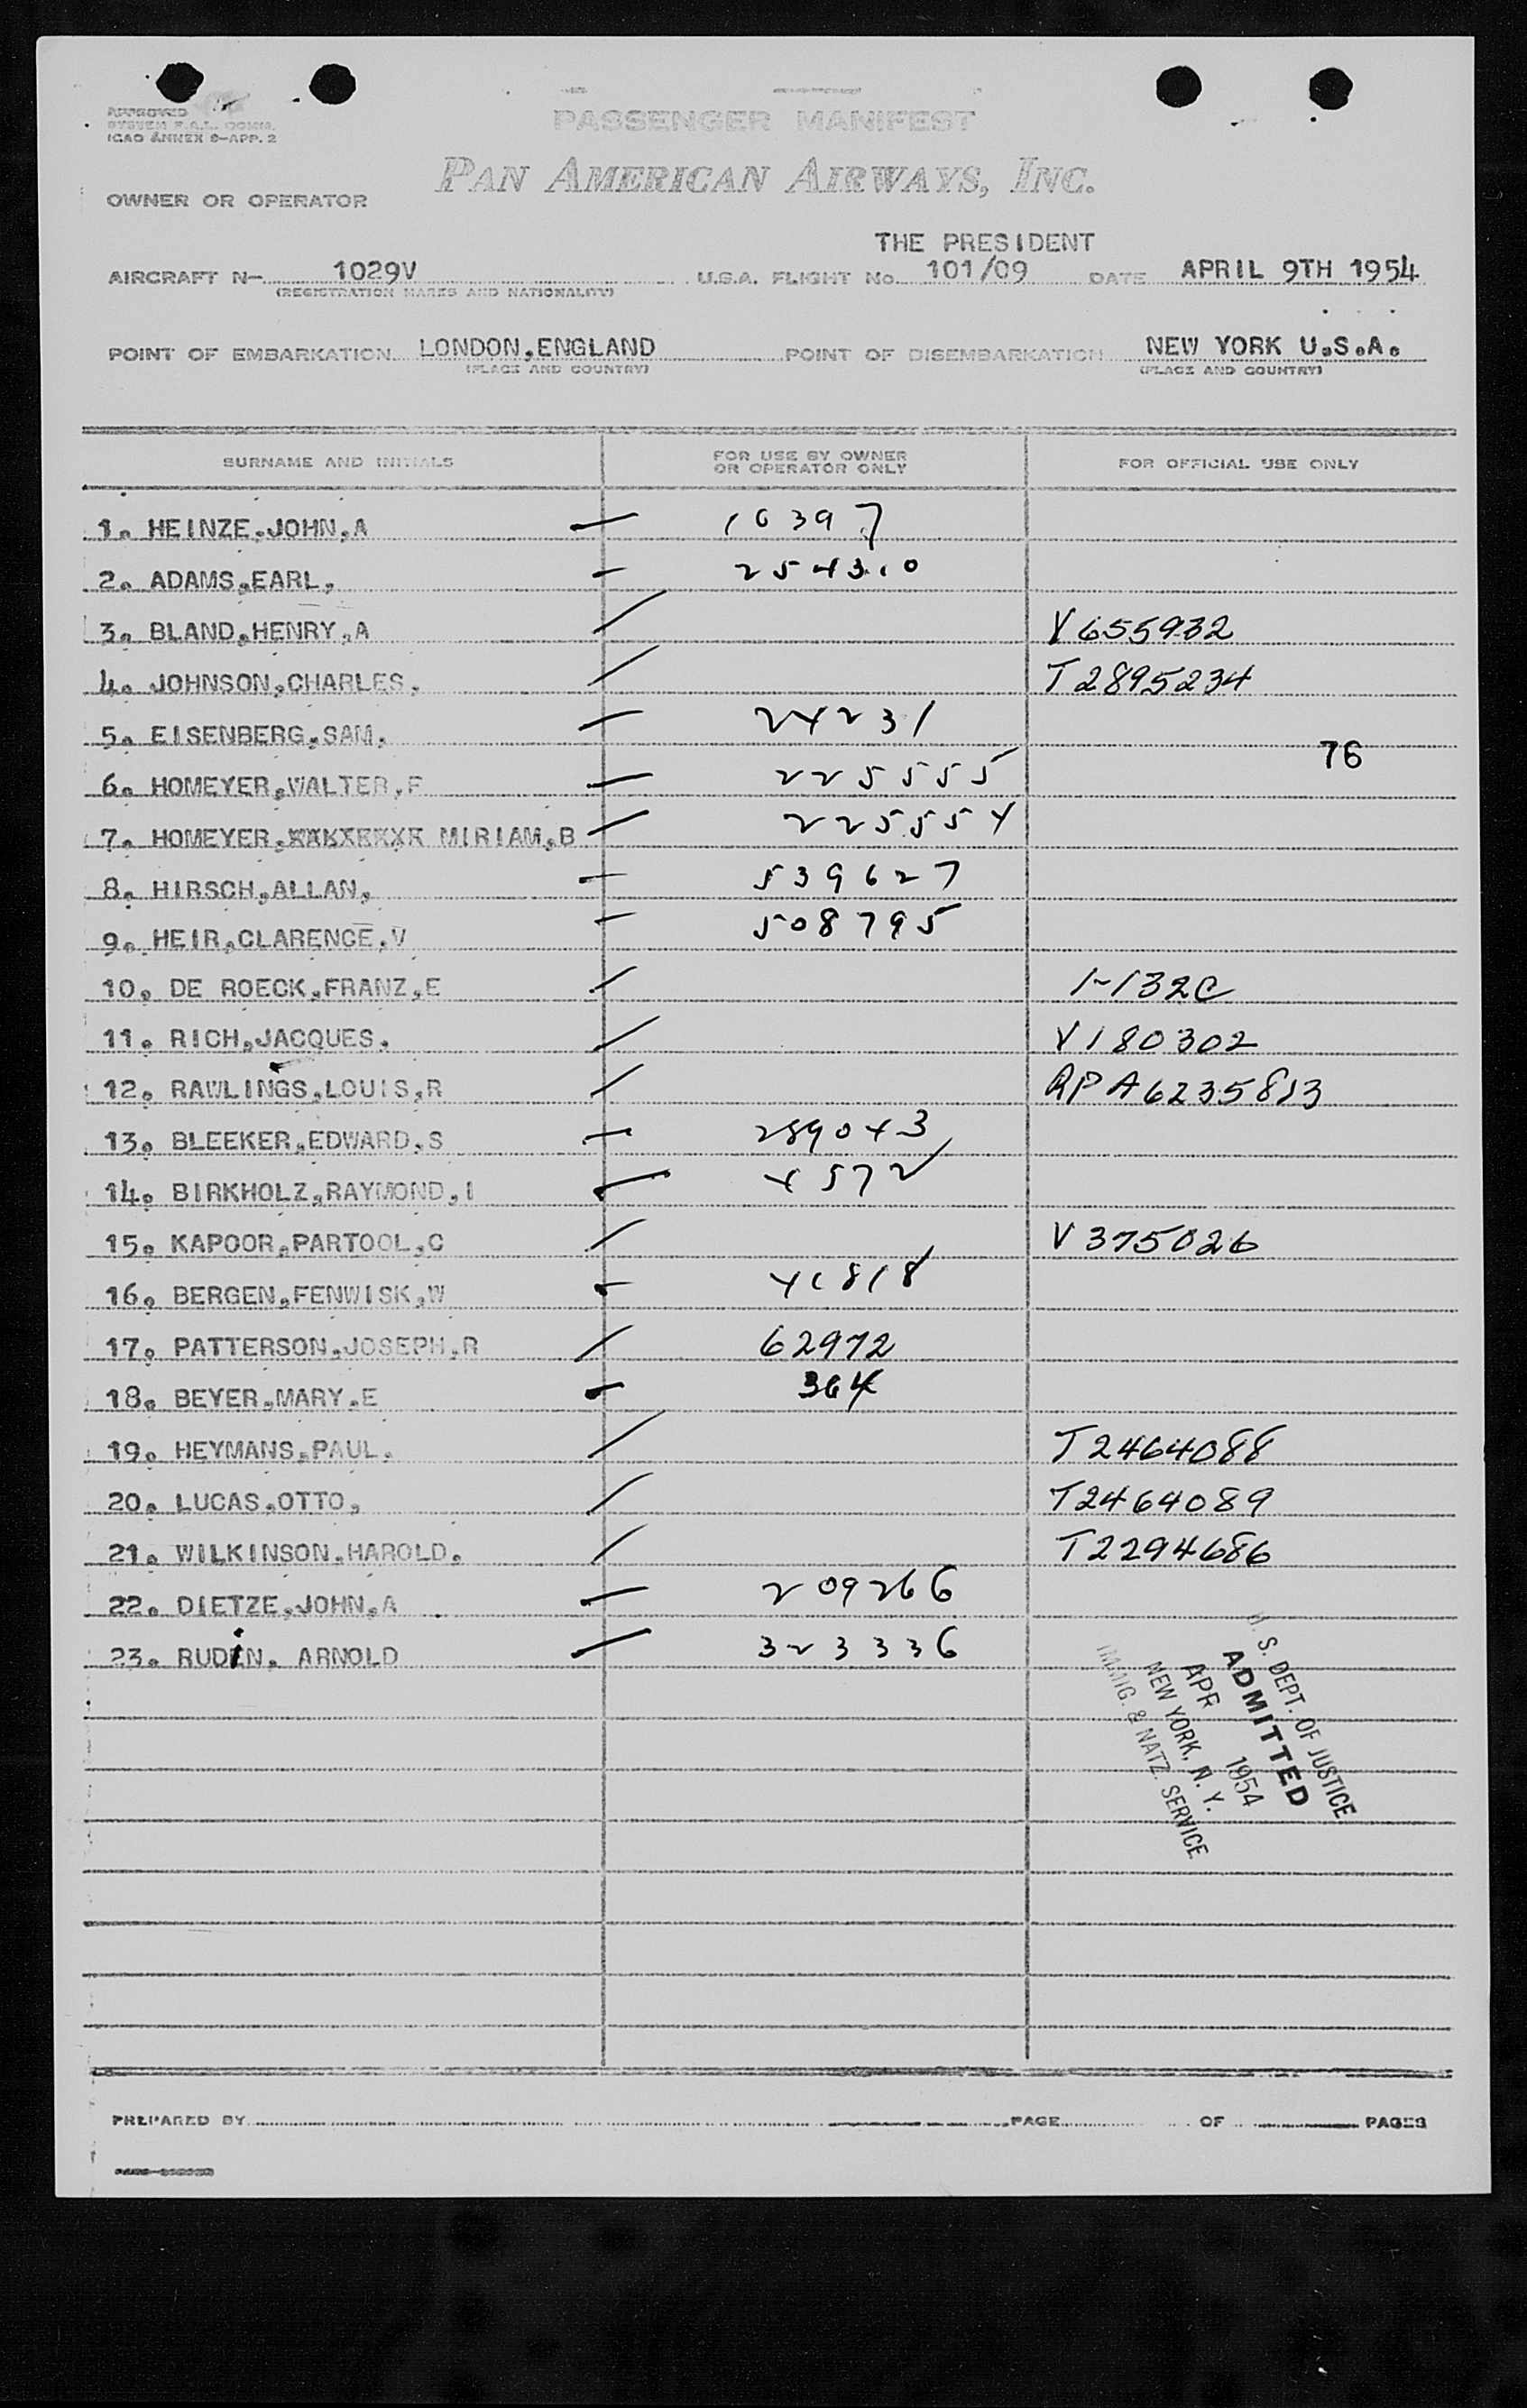 APPROVED
SYSTEM F.A.L. COMM.
ICAO ANNEX 9-APP. 2
PASSENGER MANIFEST
PAN AMERICAN AIRWAYS, INC.
OWNER OR OPERATOR
THE PRESIDENT
AIRCRAFT N- 1029V U.S.A. FLIGHT No. 101/09 DATE APRIL 9TH 1954
(REGISTRATION MARKS AND NATIONALITY)
POINT OF EMBARKATION LONDON,ENGLAND POINT OF DISEMBARKATION NEW YORK U.S.A.
(PLACE AND COUNTRY) (PLACE AND COUNTRY)
SURNAME AND INITIALS FOR USE BY OWNER OR OPERATOR ONLY FOR OFFICIAL USE ONLY
1. HEINZE,JOHN,A — 10397
2. ADAMS,EARL, — 254310
3. BLAND,HENRY,A / V655932
4. JOHNSON,CHARLES, / T2895234
5. EISENBERG,SAM, — 24231
76
6. HOMEYER,WALTER,F — 225555
7. HOMEYER, MIRIAM,B — 225554
8. HIRSCH,ALLAN, — 539627
9. HEIR,CLARENCE,V — 508795
10. DE ROECK,FRANZ,E / 1-132C
11. RICH,JACQUES, / V180302
12. RAWLINGS,LOUIS,R / RPA6235813
13. BLEEKER,EDWARD,S — 289043
14. BIRKHOLZ,RAYMOND,I — 4572
15. KAPOOR,PARTOOL,C / V375026
16. BERGEN,FENWISK,W — 41818
17. PATTERSON,JOSEPH,R / 62972
18. BEYER,MARY,E — 364
19. HEYMANS,PAUL, / T2464088
20. LUCAS,OTTO, / T2464089
21. WILKINSON,HAROLD. / T2294686
22. DIETZE,JOHN,A — 209266
23. RUDIN, ARNOLD — 323336
U. S. DEPT. OF JUSTICE
ADMITTED
APR 1954
NEW YORK, N. Y.
IMMIG. & NATZ. SERVICE
PREPARED BY PAGE OF PAGES